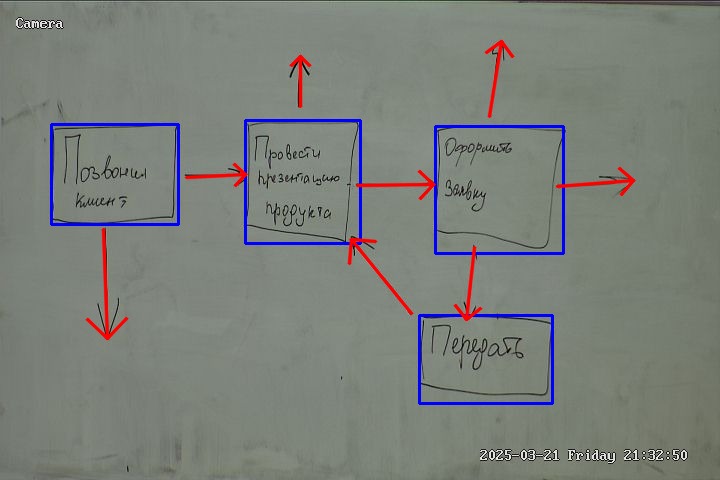 Camera
Позвонил
клиент
Провести
презентацию
продукта
Оформить
заявку
Передать
2025-03-21 Friday 21:32:50